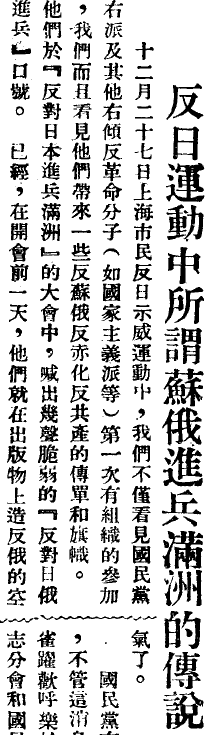 反日運動中所謂蘇俄進兵滿洲的傳說
十二月二十七日上海市民反日示威運動中，我們不僅看見國民黨
右派及其他右傾反革命分子（如國家主義派等）第一次有組織的參加
，我們而且看見他們帶來一些反蘇俄反赤化反共產的傳單和旗幟。
他們於『反對日本進兵滿洲』的大會中，喊出幾聲脆弱的『反對日俄
進兵』口號。已經，在開會前一天，他們就在出版物上造反俄的空
氣了。
國民黨
，不管這消
雀躍歡呼
志分會和國